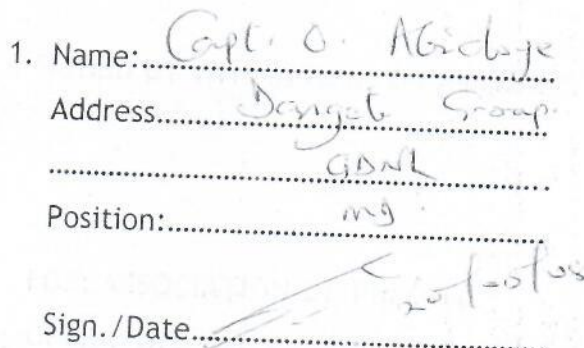 1. Name: Capt. O. Abidoye
Address Dangote Group.
GDNL
Position: mg.
Sign./Date